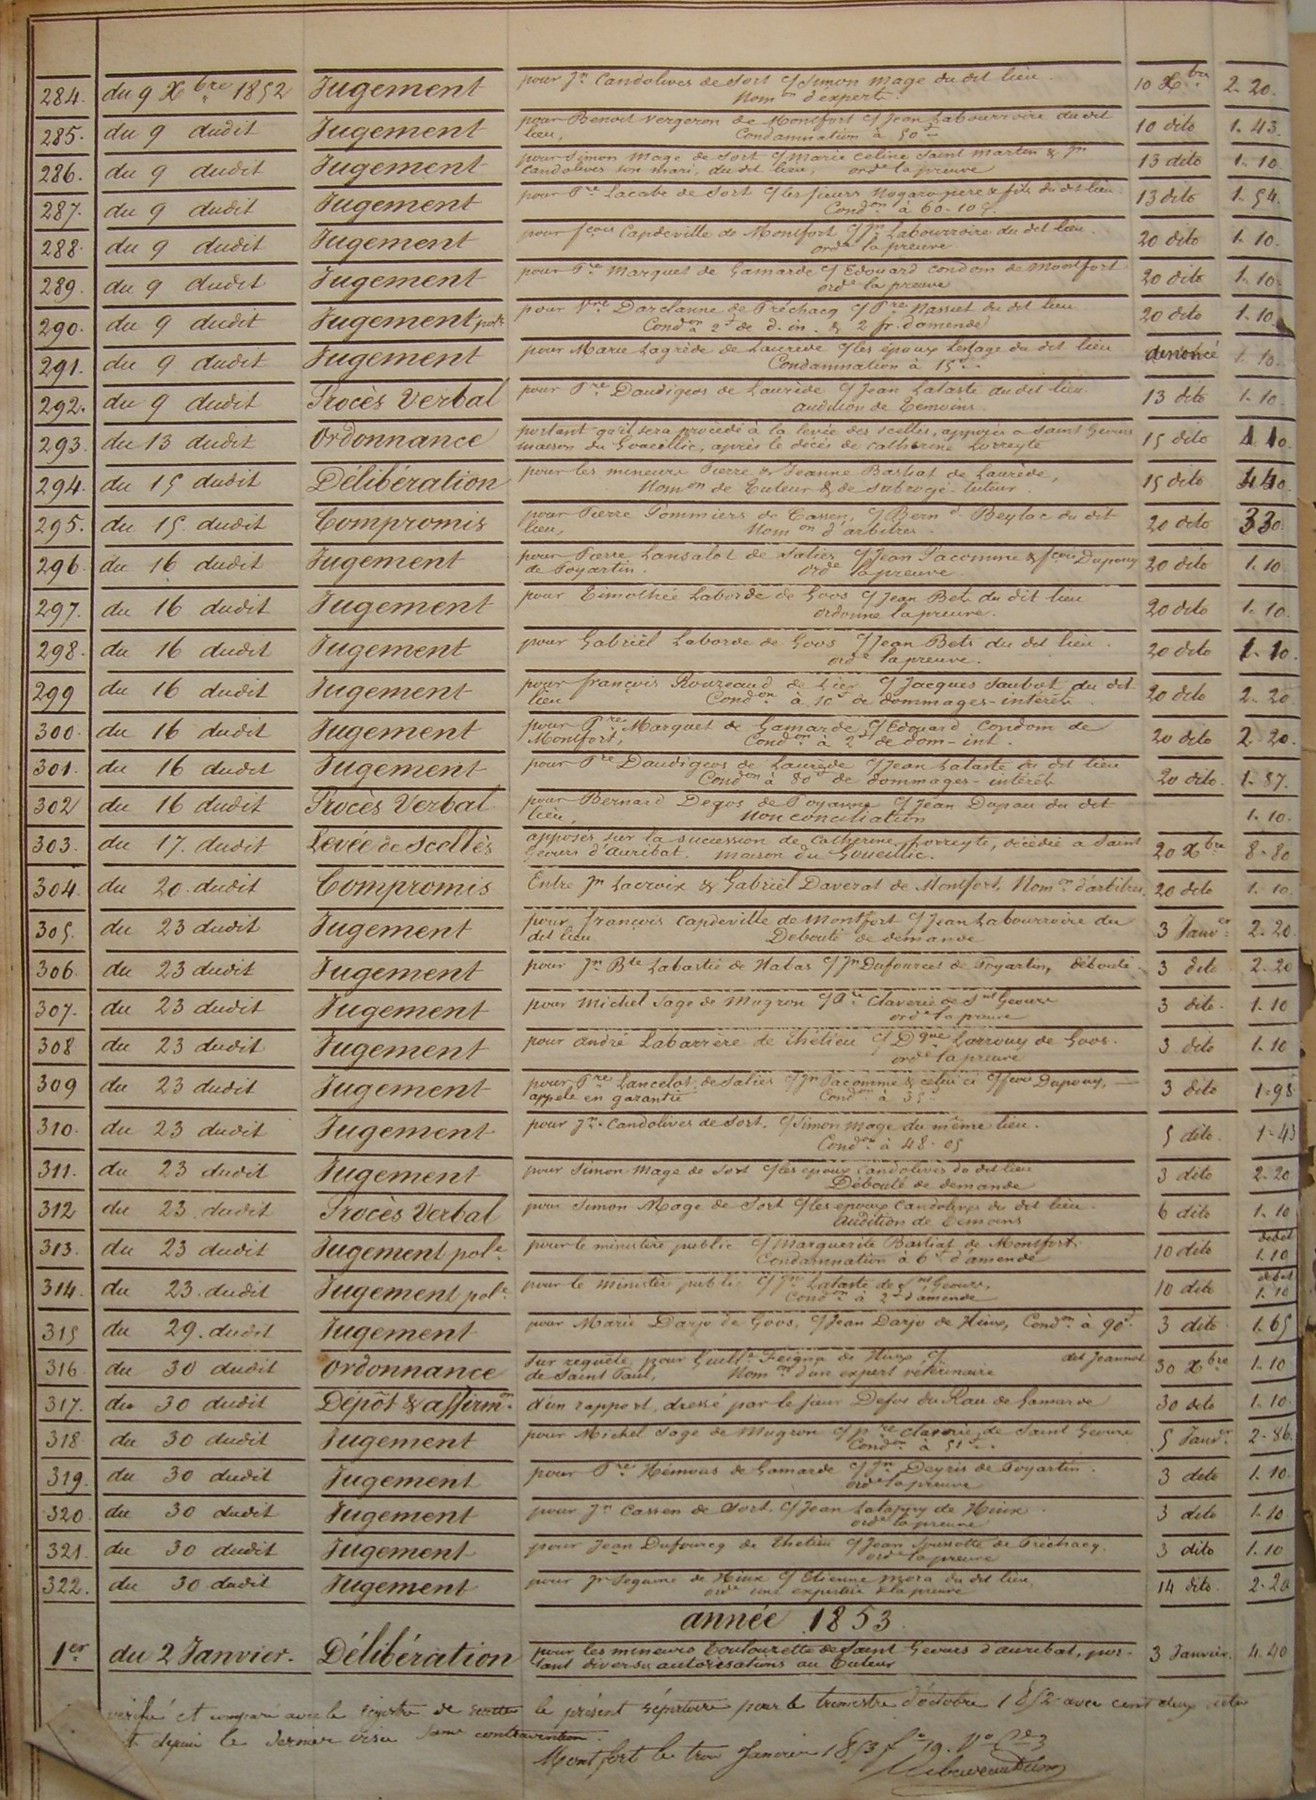 284. du 9 Xbre 1852 Jugement pour Jn Candolives de Sort c/ Simon Mage du dit lieu. 10 Xbre 2. 20.
Nomon d'experts.
285. du 9 dudit Jugement pour Benoit Vergeron de Montfort c/ Jean Labourroire du dit 10 dito 1. 43.
lieu, Condamnation à 50f
286. du 9 dudit Jugement pour Simon Mage de Sort c/ Marie Celine Saint Martin & Jn 13 dito 1. 10
Candolives son mari, du dit lieu, orde la preuve
287. du 9 dudit Jugement pour Pre Lacoste de Sort c/ les sieurs Nogaro père & fils du dit lieu. 13 dito 1. 54.
Condon à 60-10c.
288. du 9 dudit Jugement pour fçois Capdeville de Montfort c/ Jn Labourroire du dit lieu. 20 dito 1. 10.
orde la preuve
289. du 9 dudit Jugement pour Pre Marquet de Gamarde c/ Edouard Condom de Montfort 20 dito 1. 10.
orde la preuve
290. du 9 dudit Jugement pole pour Vve Darclanne de Préchacq c/ Pre Massuet du dit lieu 20 dito 1. 10.
Condon 2f de d. in. & 2 fr. d'amende
291. du 9 dudit Jugement pour Marie Lagrède de Laurède c/ les époux Lesfage du dit lieu dénoncé 1. 10.
Condamnation à 15f.
292. du 9 dudit Procès Verbal pour Pre Daudigeos de Laurède c/ Jean Lataste du dit lieu 13 dito 1. 10.
audition de Témoins.
293. du 13 dudit Ordonnance portant qu'il sera procédé à la levée des scellés, apposés à Saint Geours 15 dito 1 10.
maison du Goueillic, après le décès de Catherine Lorreyte
294. du 15 dudit Délibération pour les mineurs Pierre & Jeanne Bastiat de Laurède, 15 dito 4 40.
Nomon de Tuteur & de subrogé-tuteur
295. du 15 dudit Compromis pour Pierre Pommiers de Cassen, c/ Bernd Beylac du dit 20 dito 3 30.
lieu, Nomon d'arbitres.
296. du 16 dudit Jugement pour Pierre Lansalot de Saliès c/ Jean Pacomme & fçois Dupouy 20 dito 1. 10
de Poyartin. orde la preuve
297. du 16 dudit Jugement pour Timothée Laborde de Goos c/ Jean Bets du dit lieu 20 dito 1. 10.
ordonne la preuve.
298. du 16 dudit Jugement pour Gabriel Laborde de Goos c/ Jean Bets du dit lieu. 20 dito 1. 10.
orde la preuve.
299 du 16 dudit Jugement pour françois Rouzeaud de Lier c/ Jacques Saubat du dit 20 dito 2. 20.
lieu Condon à 10f de dommages-intérêts
300. du 16 dudit Jugement pour Pre Marquet de Gamarde c/ Edouard Condom de 20 dito 2. 20.
Montfort, Condon à 2f de dom-int.
301. du 16 dudit Jugement pour Pre Daudigeos de Laurède c/ Jean Lataste du dit lieu 20 dito. 1. 87.
Condon à 80f de dommages-intérêts
302 du 16 dudit Procès Verbal pour Bernard Degos de Poyanne c/ Jean Dupau du dit 1. 10.
lieu, Non conciliation
303. du 17. dudit Levée de Scellés apposés sur la sucession de Catherine Lorreyte, décédée à Saint 20 Xbre 8. 80
Geours d'auribat. maison du Goueillic.
304. du 20. dudit Compromis Entre Jn Lacroix & Gabriël Daverat de Montfort. Nomon d'arbitres. 20 dito 1. 10.
305. du 23 dudit Jugement pour françois Capdeville de Montfort c/ Jean Labourroire du 3 Janver 2. 20.
dit lieu Débouté de demande
306. du 23 dudit Jugement pour Jn Bte Labastie de Habas c/ Jn Dufourcet de Poyartin, débouté 3 dito 2. 20
307. du 23 dudit Jugement pour Michel Sage de Mugron c/ Pre Claverie de St Geours 3 dito. 1. 10
orde la preuve
308 du 23 dudit Jugement pour andré Labarrère de Thétieu c/ Dque Larrouy de Goos. 3 dito 1. 10
orde la preuve
309 du 23 dudit Jugement pour Pre Lancelot de Saliès c/ Jn Pacomme & celui ci c/ fçois Dupouy, 3 dito 1. 98
appelé en garantie Condon à 35f
310. du 23 dudit Jugement pour Jn Candolives de Sort. c/ Simon Mage du même lieu. 5 dito. 1. 43
Condon à 48. 05
311. du 23 dudit Jugement pour Simon Mage de Sort c/ les époux Candolives du dit lieu 3 dito 2. 20
Débouté de demande
312 du 23. dudit Procès Verbal pour Simon Mage de Sort c/ les époux Candolives du dit lieu. 6 dito 1. 10
Audition de Témoins
313. du 23 dudit Jugement pole pour le ministère public c/ Marguerite Bastiat de Montfort 10 dito débet
Condamnation à 6f d'amende 1. 10
314. du 23. dudit Jugement pole pour le ministère public c/ Jn Lataste de St Geours, 10 dito débet
Condon à 2f d'amende 1. 10
315 du 29. dudit Jugement pour Marie Darjo de Goos, c/ Jean Darjo de Hinx, Condon à 90f. 3 dito 1. 65
316 du 30 dudit Ordonnance Sur requête pour Guillme Feigna de Hinx c/ dit Jeannot 30 Xbre 1. 10
de Saint Paul, Nomon d'un expert vétérinaire
317. du 30 dudit Dépôt & affirmon d'un rapport, dressé par le sieur Defos du Rau de Gamarde 30 dito 1. 10.
318 du 30 dudit Jugement pour Michel Sage de Mugron c/ Pre Claverie, de Saint Geours 5 Janver 2. 86.
Condon à 51f.
319. du 30 dudit Jugement pour Pre Hémous de Gamarde c/ Jn Deyris de Poyartin. 3 dito 1. 10.
orde la preuve
320 du 30 dudit Jugement pour Jn Cassen de Sort. c/ Jean Lalagüy de Hinx 3 dito 1. 10
orde la preuve
321. du 30 dudit Jugement pour Jean Dufourcq de Thétieu c/ Jean Soussotte de Préchacq. 3 dito 1. 10
orde la preuve
322. du 30 dudit Jugement pour Jn Seguine de Hinx c/ Etienne Mora du dit lieu 14 dito. 2. 20
orde une expertise & la preuve
année 1853
1er du 2 Janvier. Délibération pour les mineurs Toulouzette de Saint Geours d'auribat, por- 3 Janvier. 4. 40
tant diverses autorisations au Tuteur
vérifié et comparé avec le registre de recette le présent répertoire pour le trimestre d'octobre 1852 avec cent deux actes
depuis le dernier visa sans contravention.
Montfort le trois Janvier 1853 fo 19. Vo Ce 3